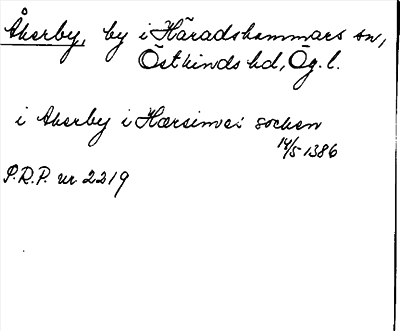 Åkerby, by i Häradshammars sn,
Östkinds hd, Ög. l.
i Akerby i Hærsimvei socken
14/5 1386
P.R.P. nr 2219